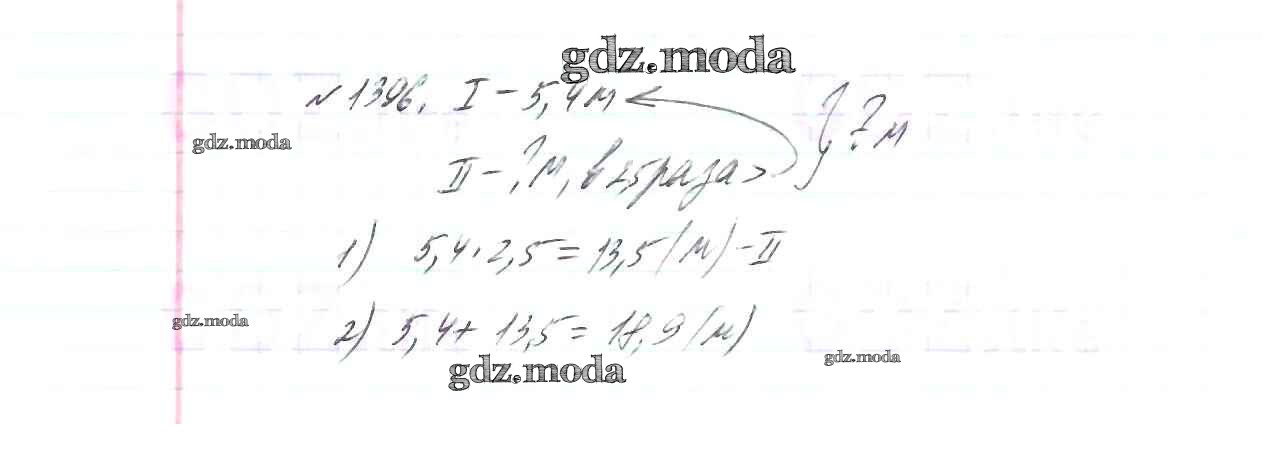 gdz.moda
№ 1396. I – 5,4 м
} ? м
gdz.moda
II – ? м, в 2,5 раза >
1) 5,4 · 2,5 = 13,5 (м) – II
gdz.moda
2) 5,4 + 13,5 = 18,9 (м)
gdz.moda
gdz.moda